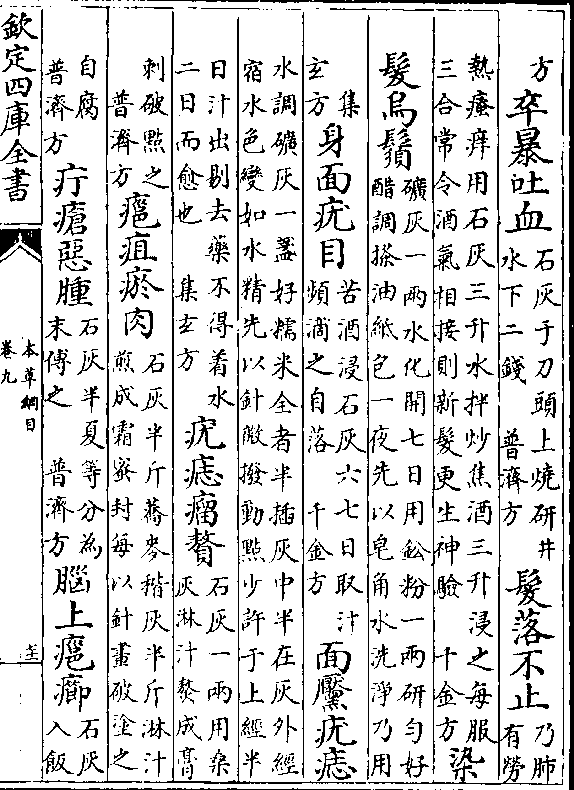 方 卒暴吐血 石灰于刀頭上燒研井水下二錢 普濟方 髮落不止 乃肺有勞
熱瘙痒用石灰三升水拌炒焦酒三升浸之每服三合常令酒氣相接則新髮更生神驗 千金方 染
髮烏鬚 礦灰一兩水化開七日用鉛粉一兩研匀好醋調搽油紙包一夜先以皂角水洗淨乃用
集玄方 身面疣目 苦酒浸石灰六七日取汁頻滴之自落 千金方 面黶疣痣
水調礦灰一盞好糯米全者半插灰中半在灰外經宿水色變如水精先以針微撥動點少許于上經半
日汁出剔去藥不得着水二日而愈也 集玄方 疣痣瘤贅 石灰一兩用桑灰淋汁熬成膏
刺破點之 普濟方 癰疽瘀肉 石灰半斤蕎麥稭灰半斤淋汁煎成霜宻封每以針畫破塗之
自腐 普濟方 疔瘡惡腫 石灰半夏等分為末傅之 普濟方 腦上癰癤 石灰入飯
欽定四庫全書
本草綱目
卷九